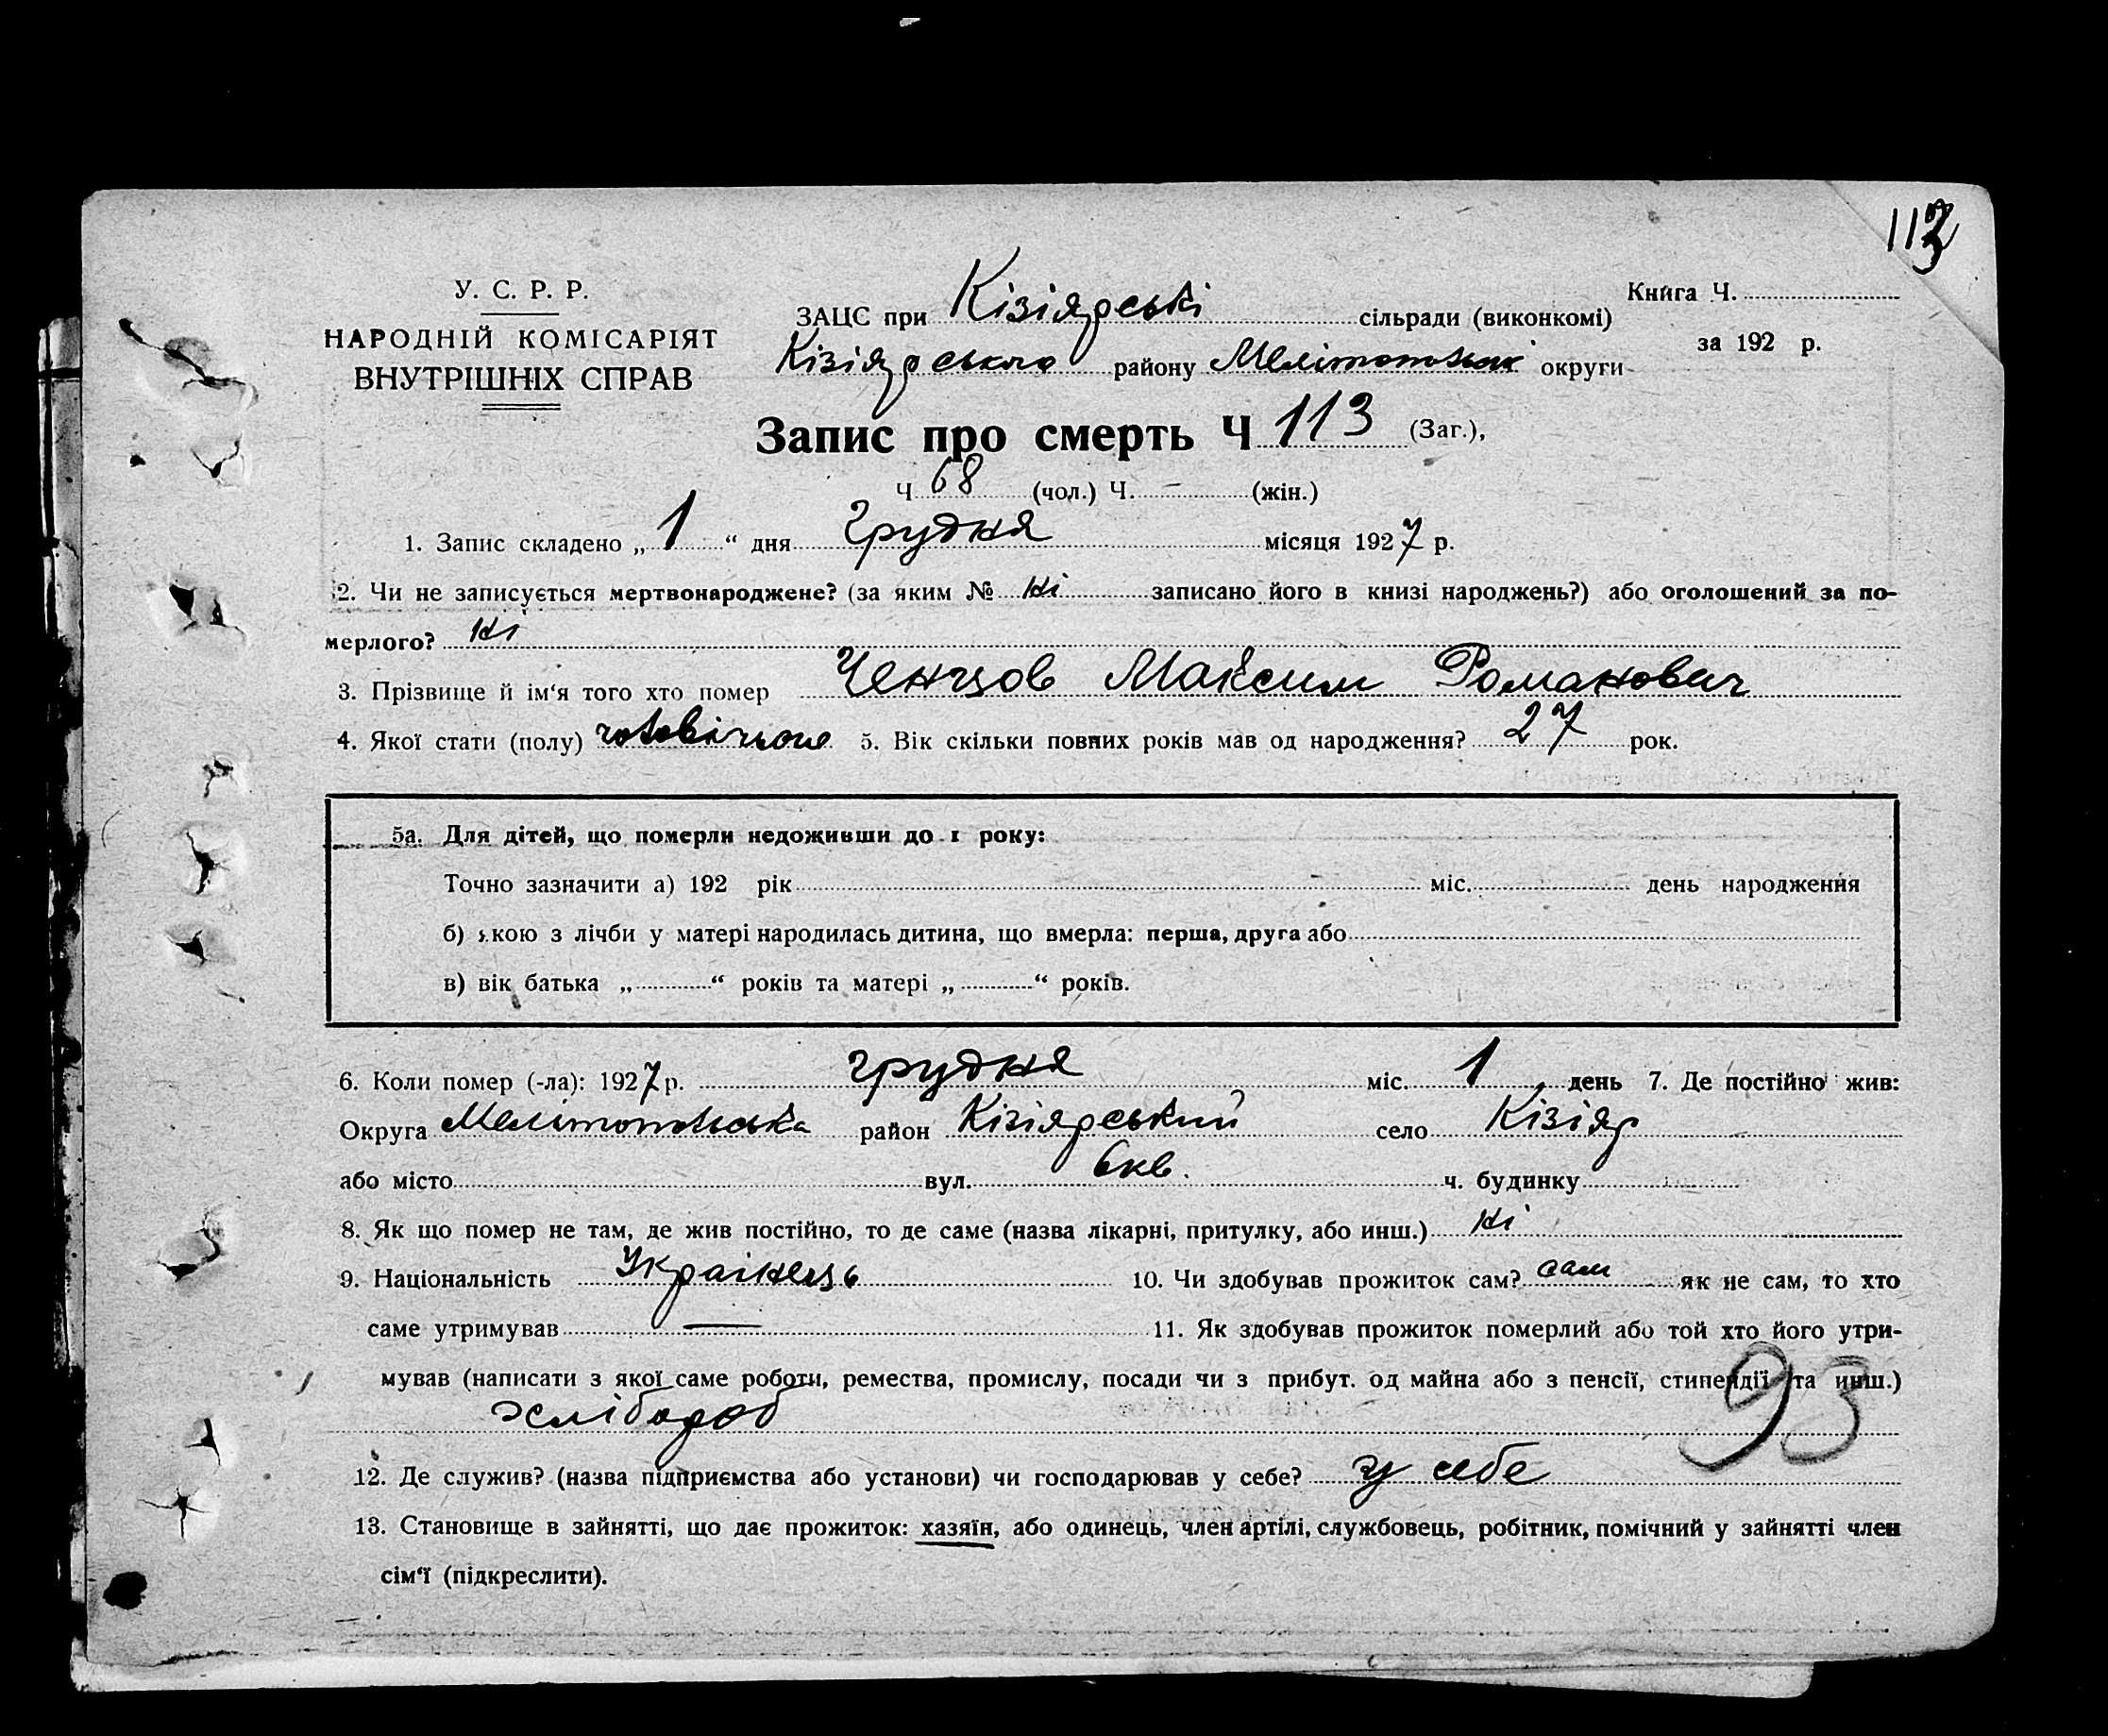 113
У. С. Р. Р.
НАРОДНІЙ КОМІСАРІЯТ
ВНУТРІШНІХ СПРАВ
ЗАЦС при Кізіярські сільради (виконкомі)
Кізіярського району Мелітопольської округи
Книга Ч.
за 192 р.
Запис про смерть Ч 113 (Заг.),
Ч 68 (чол.) Ч. — (жін.)
1. Запис складено „ 1 “ дня Грудня місяця 1927 р.
2. Чи не записується мертвонароджене? (за яким № ні записано його в книзі народжень?) або оголошений за по-
мерлого? ні
3. Прізвище й ім‘я того хто помер Ченцов Максим Романович
4. Якої стати (полу) чоловічою 5. Вік скільки повних років мав од народження? 27 рок.
5а. Для дітей, що померли недоживши до 1 року:
Точно зазначити а) 192 рік міс. день народження
б) якою з лічби у матері народилась дитина, що вмерла: перша, друга або
в) вік батька „ “ років та матері „ “ років.
6. Коли помер (-ла): 1927 р. грудня міс. 1 день 7. Де постійно жив:
Округа Мелітопольська район Кізіярський село Кізіяр
або місто вул. 6 кв. ч. будинку
8. Як що помер не там, де жив постійно, то де саме (назва лікарні, притулку, або инш.) ні
9. Національність Українець 10. Чи здобував прожиток сам? сам як не сам, то хто
саме утримував — 11. Як здобував прожиток померлий або той хто його утри-
мував (написати з якої саме роботи, ремества, промислу, посади чи з прибут. од майна або з пенсії, стипендії та инш.)
хлібороб
93
12. Де служив? (назва підприємства або установи) чи господарював у себе? у себе
13. Становище в зайнятті, що дає прожиток: хазяїн, або одинець, член артілі, службовець, робітник, помічний у зайнятті член
сім‘ї (підкреслити).